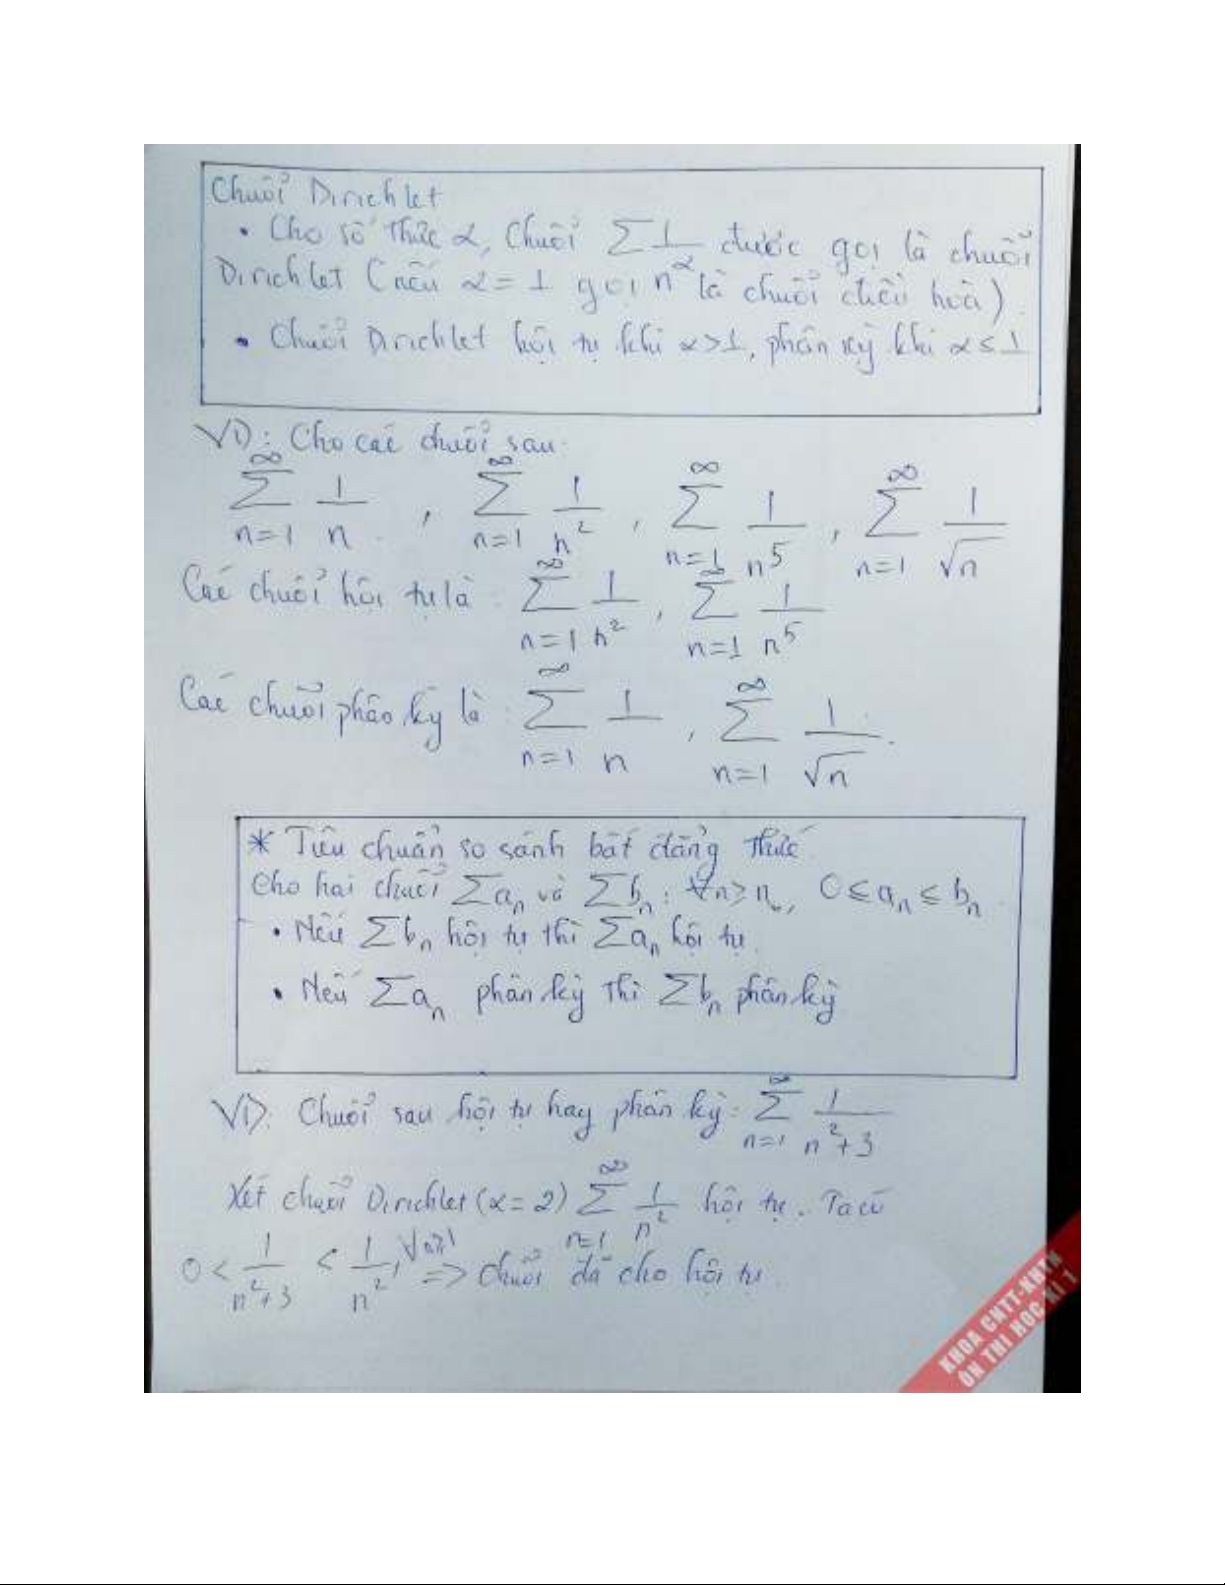 Chuỗi Dirichlet
• Cho số thực α, Chuỗi ∑ 1/n^α được gọi là chuỗi
Dirichlet (nếu α = 1 gọi là chuỗi điều hoà)
• Chuỗi Dirichlet hội tụ khi α>1, phân kỳ khi α ≤ 1
VD: Cho các chuỗi sau:
∑_{n=1}^{∞} 1/n , ∑_{n=1}^{∞} 1/n^2 , ∑_{n=1}^{∞} 1/n^5 , ∑_{n=1}^{∞} 1/√n
Các chuỗi hội tụ là : ∑_{n=1}^{∞} 1/n^2 , ∑_{n=1}^{∞} 1/n^5
Các chuỗi phân kỳ là : ∑_{n=1}^{∞} 1/n , ∑_{n=1}^{∞} 1/√n .
* Tiêu chuẩn so sánh bất đẳng thức
Cho hai chuỗi ∑a_n và ∑b_n : ∀n ≥ n_0, 0 ≤ a_n ≤ b_n .
• Nếu ∑b_n hội tụ thì ∑a_n hội tụ.
• Nếu ∑a_n phân kỳ thì ∑b_n phân kỳ
VD: Chuỗi sau hội tụ hay phân kỳ: ∑_{n=1}^{∞} 1/(n^2+3)
Xét chuỗi Dirichlet (α = 2) ∑_{n=1}^{∞} 1/n^2 hội tụ. Ta có
0 < 1/(n^2+3) < 1/n^2, ∀n≥1 => Chuỗi đã cho hội tụ.
KHOA CNTT-KHTN
ÔN THI HỌC KÌ 1